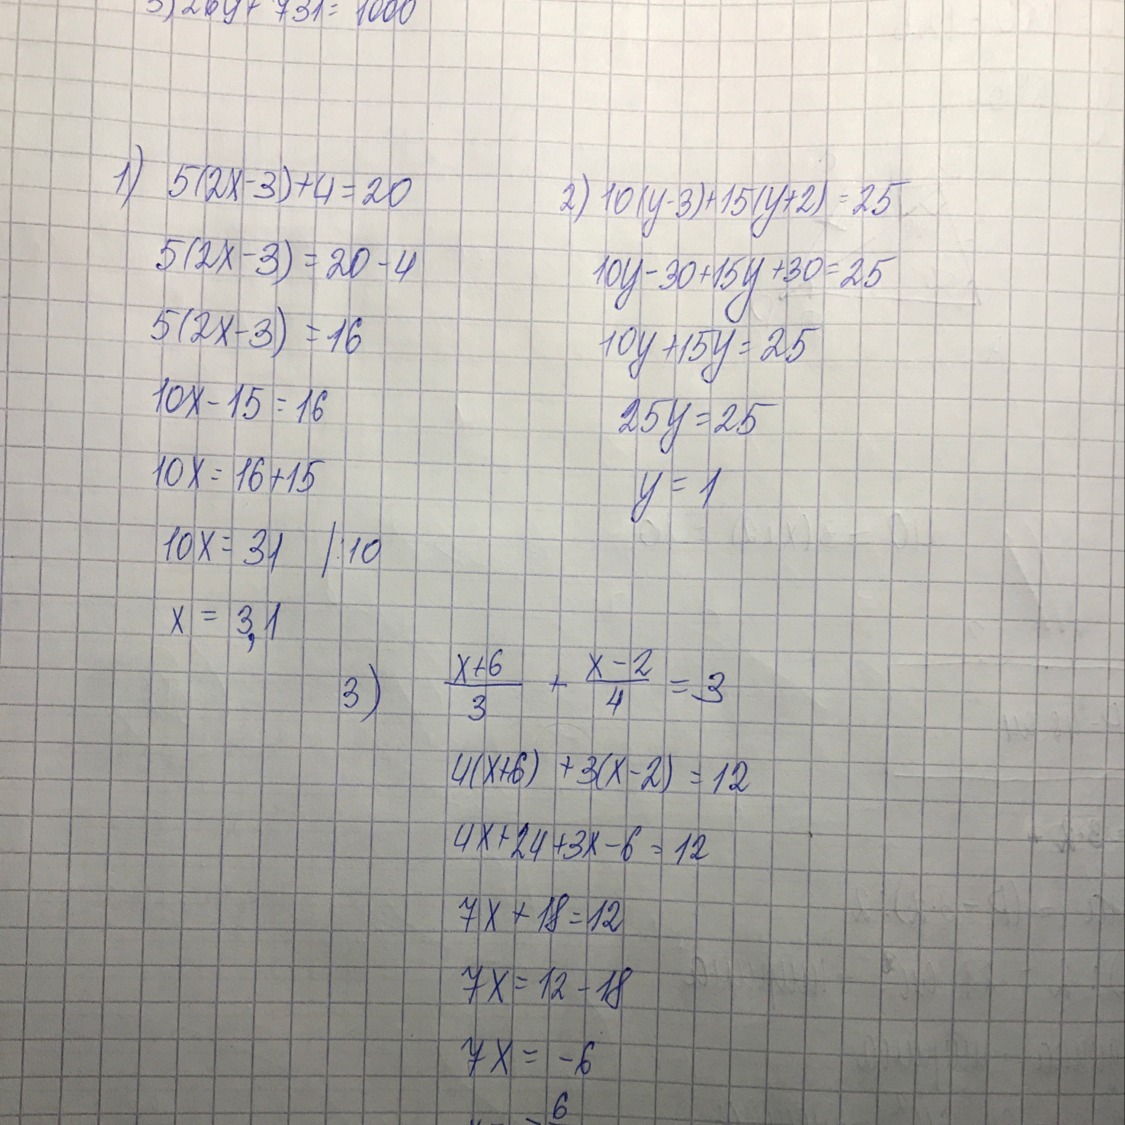 3) 26y + 731 = 1000
1) 5(2x-3)+4=20
5(2x-3) = 20-4
5(2x-3) = 16
10x-15 = 16
10x = 16+15
10x = 31 /:10
x = 3,1
2) 10(y-3)+15(y+2) = 25
10y-30+15y+30=25
10y+15y=25
25y=25
y = 1
3) \frac{x+6}{3} + \frac{x-2}{4} = 3
4(x+6) +3(x-2) = 12
4x+24+3x-6 = 12
7x+18=12
7x=12-18
7x = -6
6